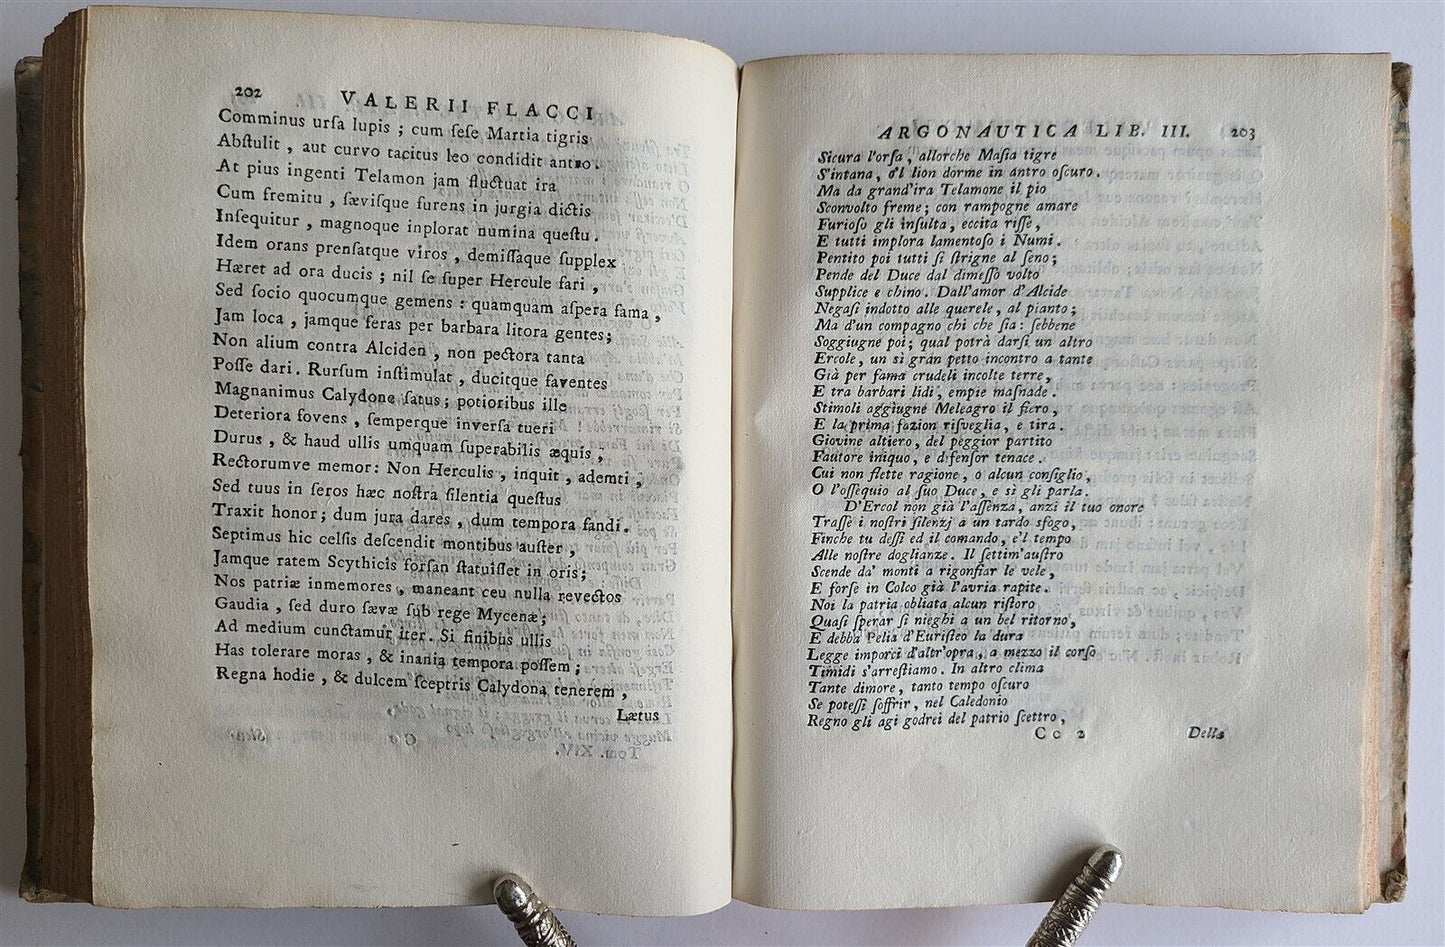 202
VALERII FLACCI
Comminus urſa lupis ; cum ſeſe Martia tigris
Abſtulit , aut curvo tacitus leo condidit antro .
At pius ingenti Telamon jam fluctuat ira
Cum fremitu , ſæviſque furens in jurgia dictis
Inſequitur , magnoque inplorat numina queſtu .
Idem orans prenſatque viros , demiſſaque ſupplex
Hæret ad ora ducis ; nil ſe ſuper Hercule fari ,
Sed ſocio quocumque gemens : quamquam aſpera fama ,
Jam loca , jamque feras per barbara litora gentes ;
Non alium contra Alciden , non pectora tanta
Poſſe dari . Rurſum inſtimulat , ducitque faventes
Magnanimus Calydone ſatus ; potioribus ille
Deteriora fovens , ſemperque inverſa tueri
Durus , & haud ullis umquam ſuperabilis æquis ,
Rectorumve memor : Non Herculis , inquit , ademti ,
Sed tuus in ſeros hæc noſtra ſilentia queſtus
Traxit honor ; dum jura dares , dum tempora fandi .
Septimus hic celſis deſcendit montibus auſter ,
Jamque ratem Scythicis forſan ſtatuiſſet in oris ;
Nos patriæ inmemores , maneant ceu nulla revectos
Gaudia , ſed duro ſævæ ſub rege Mycenæ ;
Ad medium cunctamur iter . Si finibus ullis
Has tolerare moras , & inania tempora poſſem ;
Regna hodie , & dulcem ſceptris Calydona tenerem ,
Lætus
ARGONAUTICA LIB. III.
203
Sicura l'orſa , allorche Maſia tigre
S'intana , o'l lion dorme in antro oſcuro .
Ma da grand'ira Telamone il pio
Sconvolto freme ; con rampogne amare
Furioſo gli inſulta , eccita riſſe ,
E tutti implora lamentoſo i Numi .
Pentito poi tutti ſi ſtrigne al ſeno ;
Pende del Duce dal dimeſſo volto
Supplice e chino . Dall'amor d'Alcide
Negaſi indotto alle querele , al pianto ;
Ma d'un compagno chi che ſia : ſebbene
Soggiugne poi ; qual potrà darſi un altro
Ercole , un sì gran petto incontro a tante
Già per fama crudeli incolte terre ,
E tra barbari lidi , empie maſnade .
Stimoli aggiugne Meleagro il fiero ,
E la prima fazion riſveglia , e tira .
Giovine altiero , del peggior partito
Fautore iniquo , e difenſor tenace .
Cui non flette ragione , o alcun conſiglio ,
O l'oſſequio al ſuo Duce , e sì gli parla .
D'Ercol non già l'aſſenza , anzi il tuo onore
Traſſe i noſtri ſilenzj a un tardo sfogo ,
Finche tu deſſi ed il comando , e'l tempo
Alle noſtre doglianze . Il ſettim'auſtro
Scende da' monti a rigonfiar le vele ,
E forſe in Colco già l'avria rapite .
Noi la patria obliata alcun riſtoro
Quaſi ſperar ſi nieghi a un bel ritorno ,
E debba Pelia d'Euriſteo la dura
Legge imporci d'altr'opra , a mezzo il corſo
Timidi s'arreſtiamo . In altro clima
Tante dimore , tanto tempo oſcuro
Se poteſſi ſoffrir , nel Caledonio
Regno gli agi godrei del patrio ſcettro ,
C c 2
Della